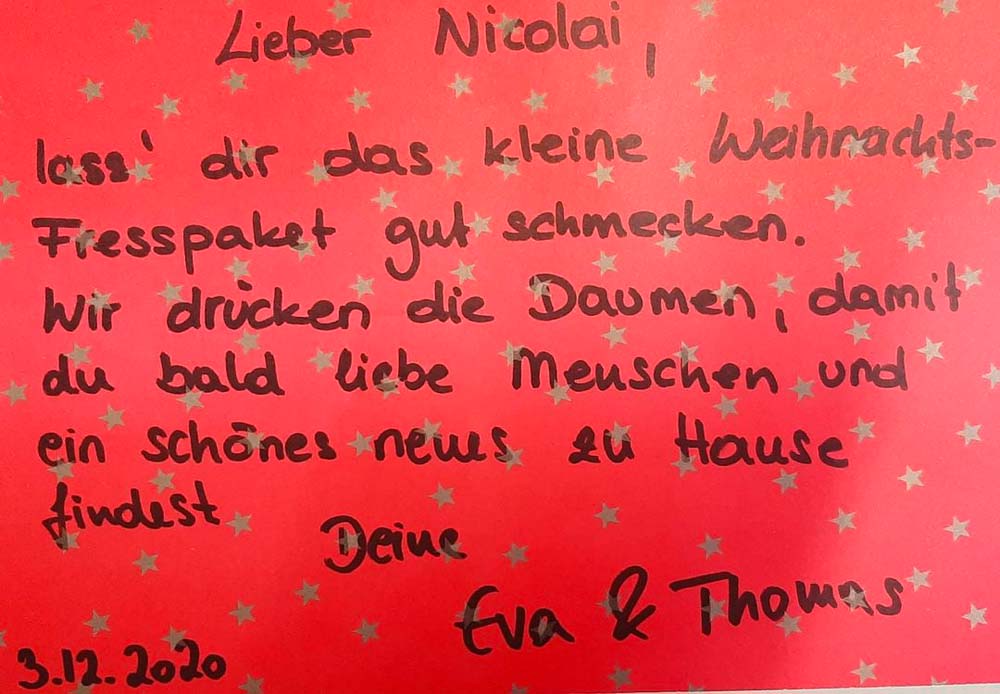 Lieber Nicolai,
lass' dir das kleine Weihnachts-
Fresspaket gut schmecken.
Wir drücken die Daumen, damit
du bald liebe Menschen und
ein schönes neues zu Hause
findest
Deine
Eva & Thomas
3.12.2020